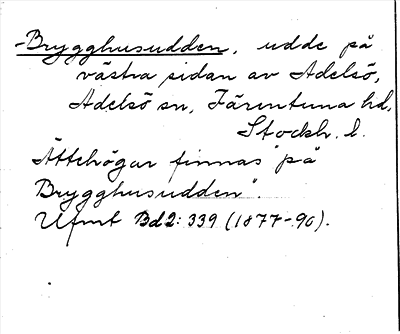 -Brygghusudden, udde på
västra sidan av Adelsö,
Adelsö sn, Färentuna hd,
Stockh. l.
Ättehögar finnas "på
Brygghusudden".
Ufmt Bd2: 339 (1877-90).